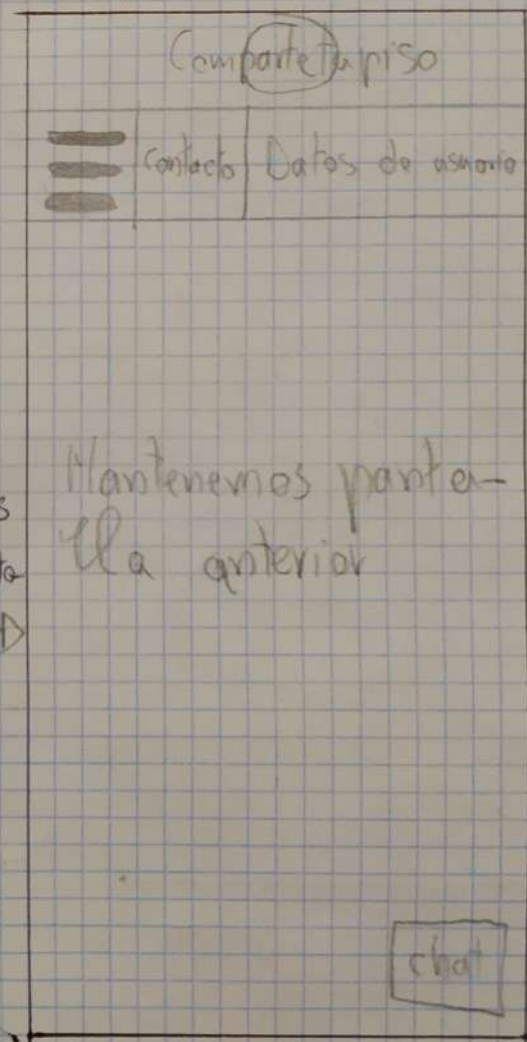 Compartetupiso
Contacto
Datos de usuario
Mantenemos panta-
lla anterior
chat